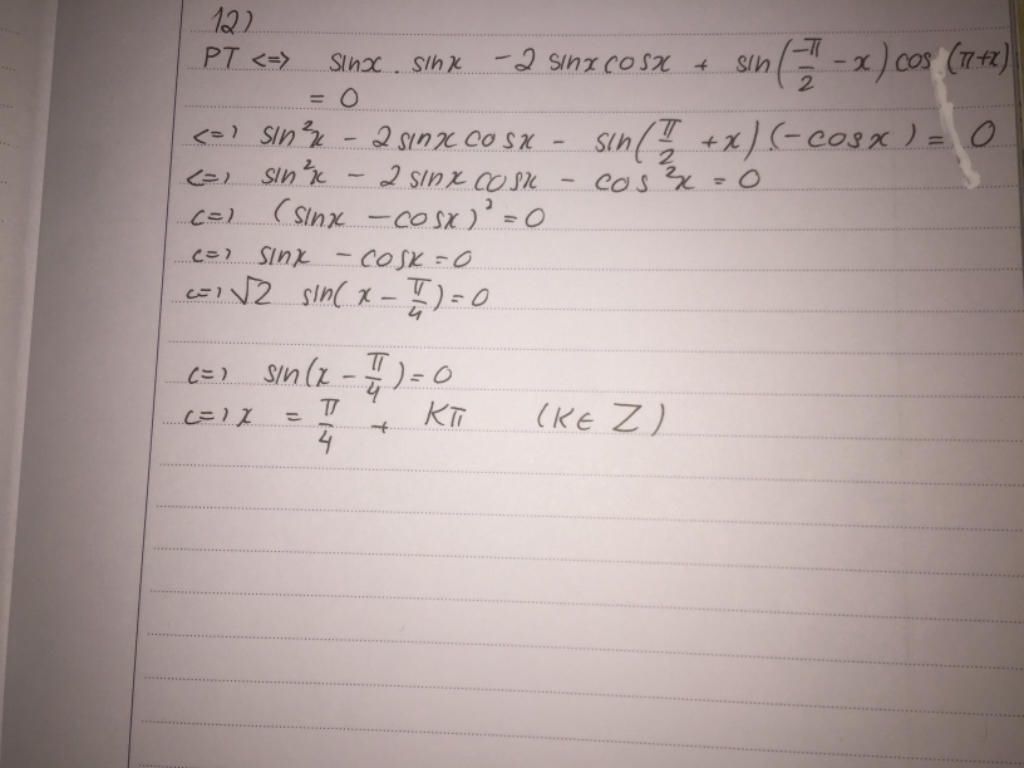 12)
PT <=> sinx . sinx - 2 sinxcosx + sin(-π/2 - x) cos(π+x)
= 0
<=> sin²x - 2 sinx cosx - sin(π/2 + x).(-cosx) = 0
<=> sin²x - 2 sinx cosx - cos²x = 0
<=> (sinx - cosx)² = 0
<=> sinx - cosx = 0
<=> √2 sin(x - π/4) = 0
<=> sin(x - π/4) = 0
<=> x = π/4 + Kπ (K∈ Z)